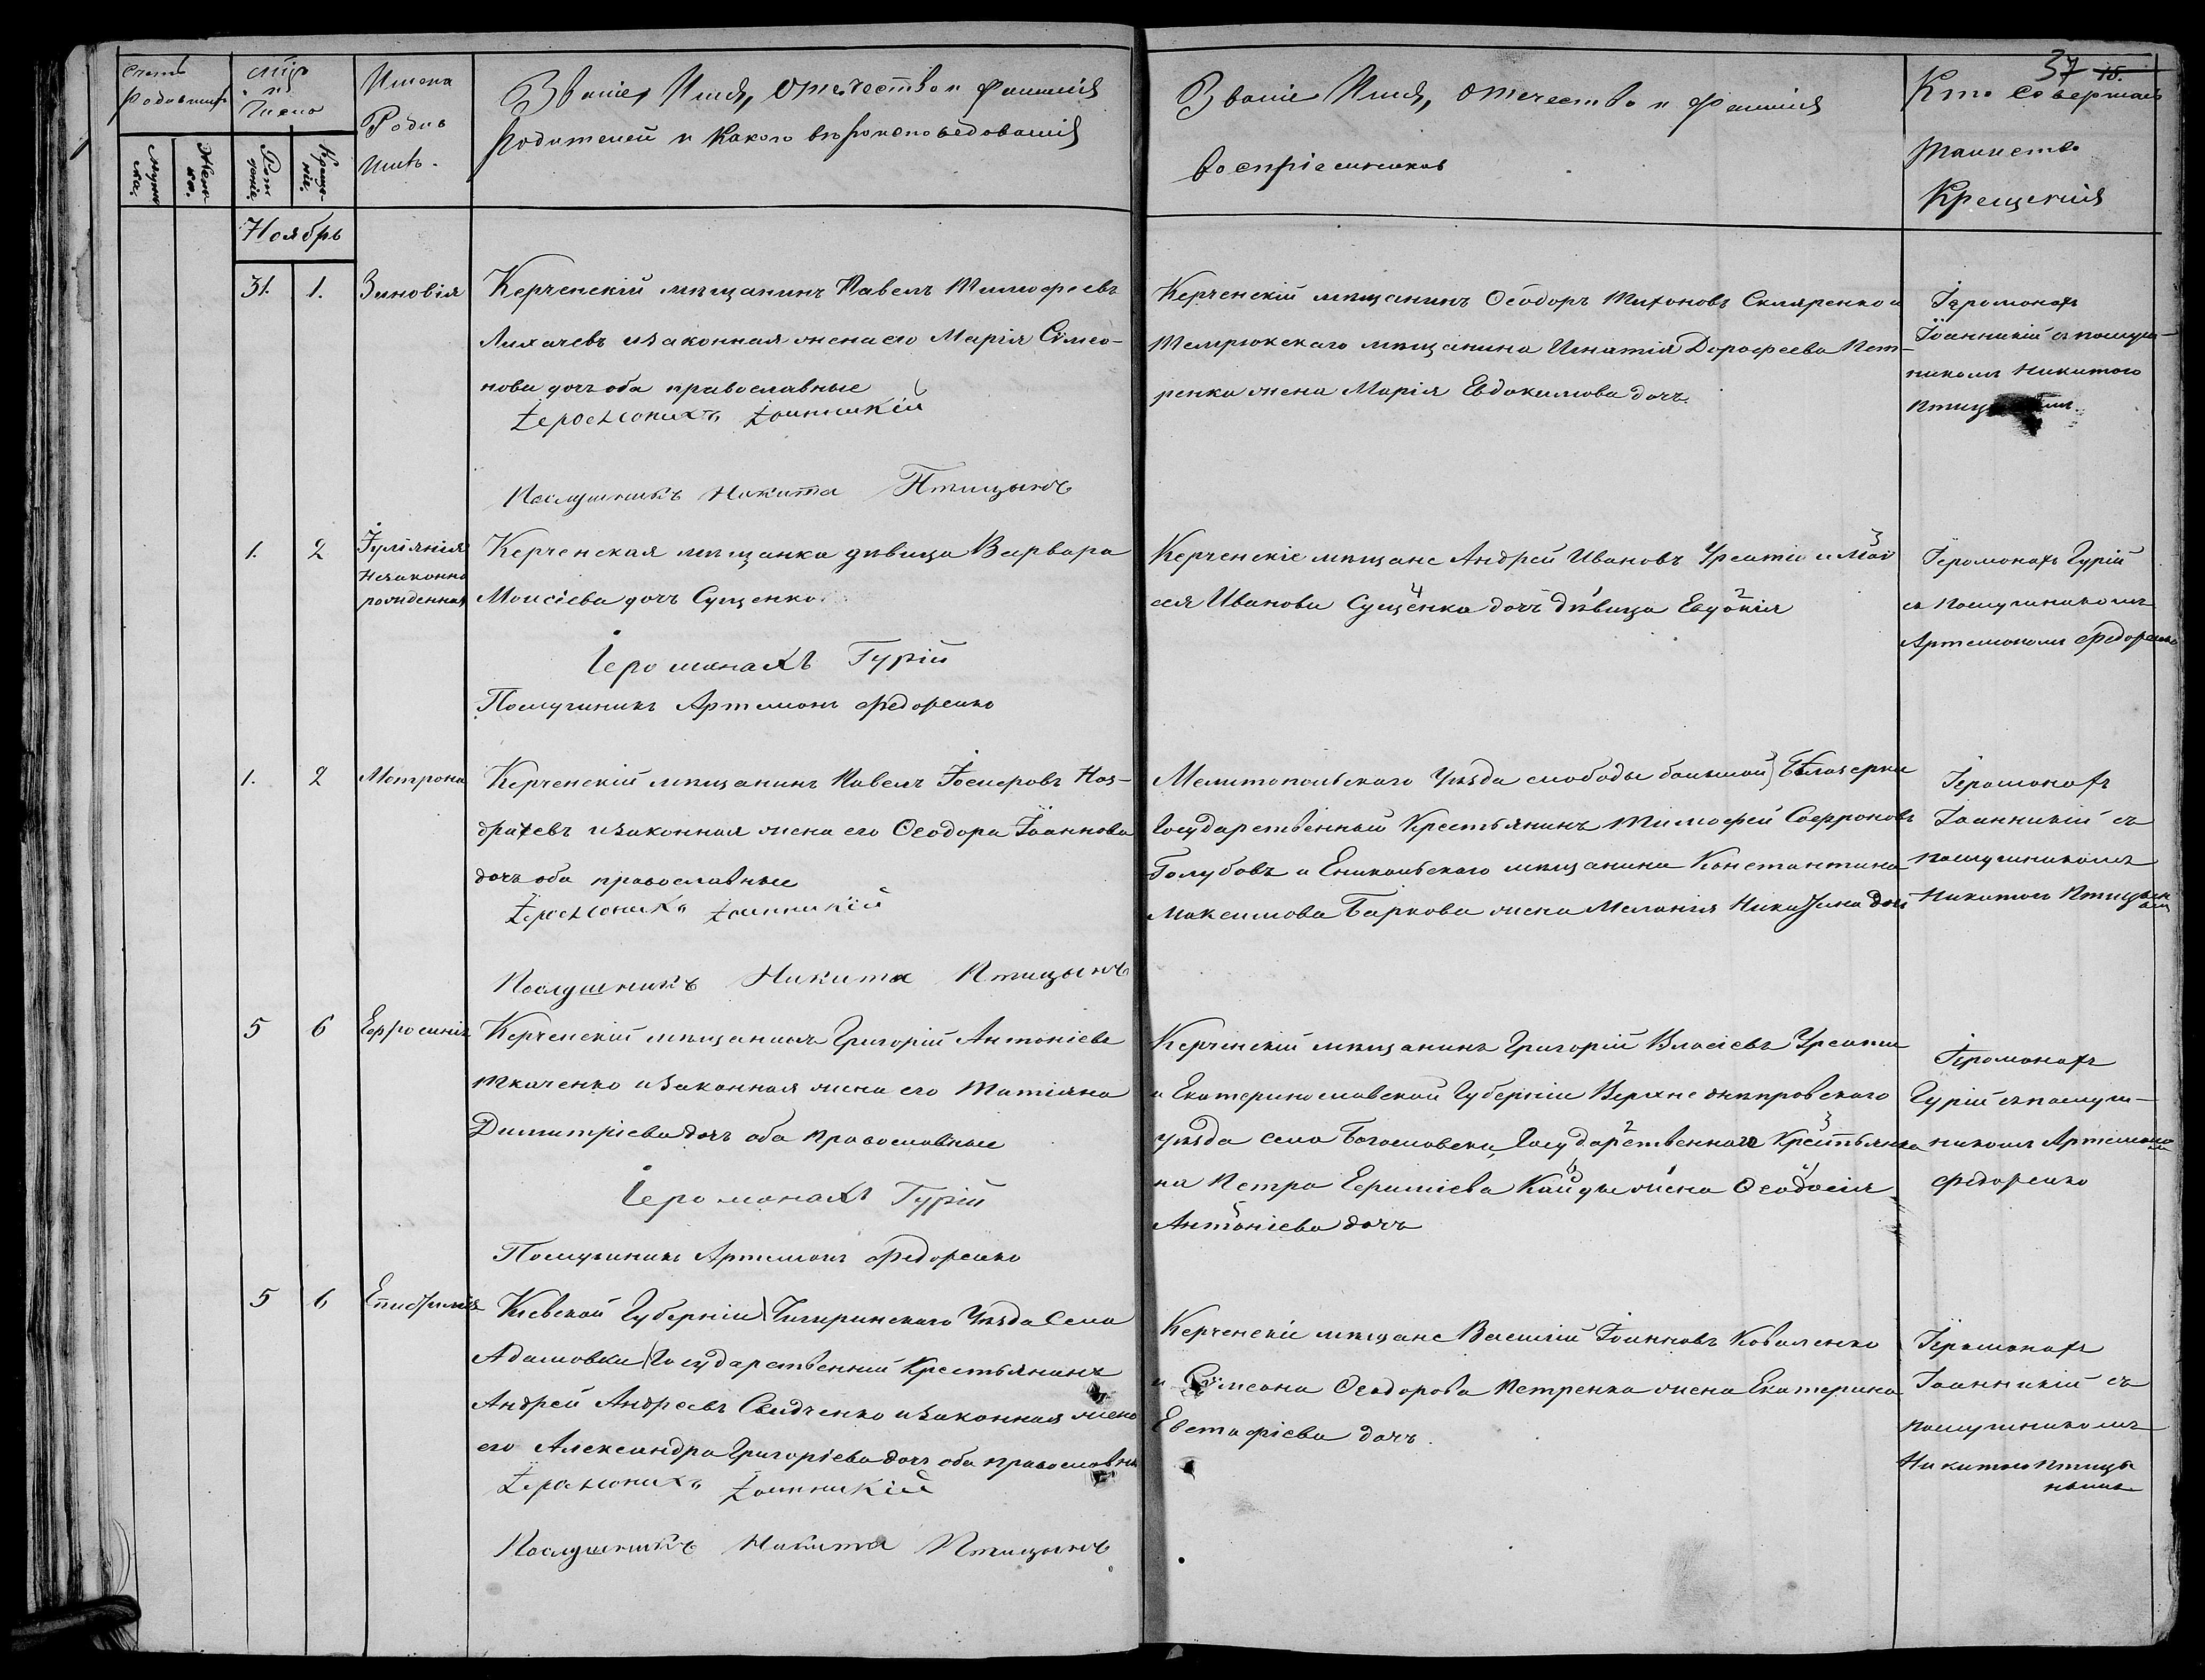 37 15.
Счетъ родившихся
Мужеска.
Женска.
Мѣсяцъ и Число
Рожденіе.
Крещеніе.
Имена Родившихъ.
Званіе, Имя, Отечество и фамилія
Родителей и Какого вѣроисповедованія
Званіе Имя, Отечество и фамилія
воспріемниковъ
Кто совершалъ
Таинство
Крещенія
Ноябрь
31. 1. Зиновія
Керченскій мѣщанинъ Павелъ Тимофеевъ
Лихачевъ и законная жена его Марія Сѵмео-
нова дочь оба православные
Іеромонахъ Іоанникій
Послушникъ Никита Птицынъ
Керченскій мѣщанинъ Ѳеодоръ Тихоновъ Скляренко и
Темрюкскаго мѣщанина Игнатія Дорофеева Пет-
ренка жена Марія Евдокимова дочь.
Іеромонахъ
Іоанникій съ послуш-
никомъ Никитою
1. 2 Іуліянія
незаконно
рожденная
Керченская мѣщанка дѣвица Варвара
Моисіева дочь Сущенко
Іеромонахъ Гурій
Послушникъ Артемонъ Федоренко
Керченскіе мѣщане Андрей Ивановъ и Мои
сея Иванова Сущенка дочь дѣвица Евдокія
Іеромонахъ Гурій
съ послушникомъ
Артемономъ Федоренко
1. 2 Матрона
Керченскій мѣщанинъ Павелъ Ноз-
драчевъ и законная жена его Ѳеодора Іоаннова
дочь оба православные
Іеромонахъ Іоанникій
Послушникъ Никита Птицынъ
Мелитопольскаго Уѣзда слободы большой Бѣлозерки
Государственный Крестьянинъ Тимофей Софроновъ
Голубовъ и Еникольскаго мѣщанина Константина
Максимова Баркова жена Меланія дочь
Іеромонахъ
Іоанникій съ
послушникомъ
Никитою Птицынымъ
5 6 Евфросинія
Керченскій мѣщанинъ Григорій Антоніевъ
Ткаченко и законная жена его Татіяна
Димитріева дочь оба православные
Іеромонахъ Гурій
Послушникъ Артемонъ Федоренко
Керченскій мѣщанинъ Григорій Власіевъ
и Екатеринославской Губерніи Верхнеднѣпровскаго
уѣзда села Государственнаго Крестьяни
на Петра жена Ѳеодосія
Антоніева дочь
Іеромонахъ
Гурій съ послуш-
никомъ Артемоно
Федоренко
5 6 Епистимія
Кіевской Губерніи Чигиринскаго Уѣзда Села
Адамовки Государственний Крестьянинъ
Андрей Андреевъ Свидченко и законная жена
его Александра Григоріева дочь оба православны
Іеромонахъ Іоанникій
Послушникъ Никита Птицынъ
Керченскіе мѣщане Василій Іоанновъ Коваленко
и Сѵмеона Ѳеодорова Петренка жена Екатерина
Евстафіева дочь.
Іеромонахъ
Іоанникій съ
послушникомъ
Никитою Птицы
нымъ